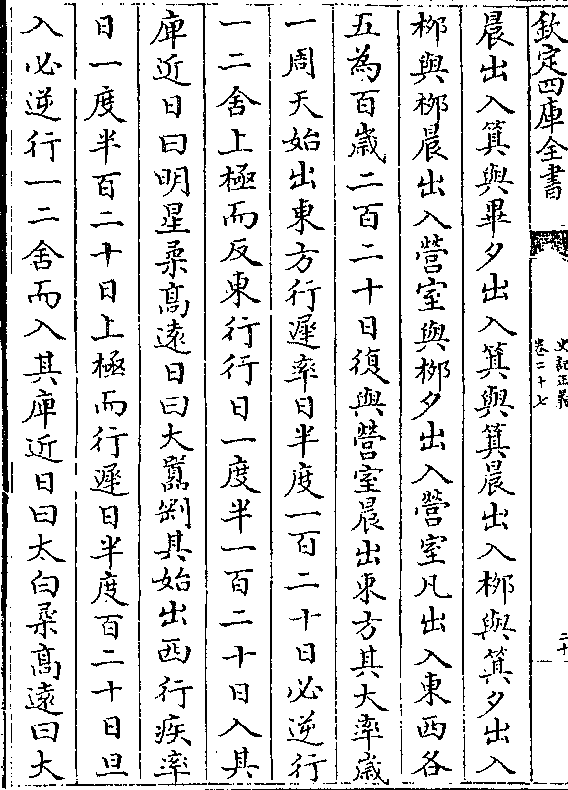 欽定四庫全書
史記正義
卷二十七
二十
晨出入箕與畢夕出入箕與箕晨出入柳與箕夕出入
柳與柳晨出入營室與柳夕出入營室凡出入東西各
五為百歲二百二十日復與營室晨出東方其大率歲
一周天始出東方行遲率日半度一百二十日必逆行
一二舍上極而反東行行日一度半一百二十日入其
庳近日曰明星柔高遠日曰大嚻剛其始出西行疾率
日一度半百二十日上極而行遲日半度百二十日旦
入必逆行一二舍而入其庳近日曰太白柔高遠曰大